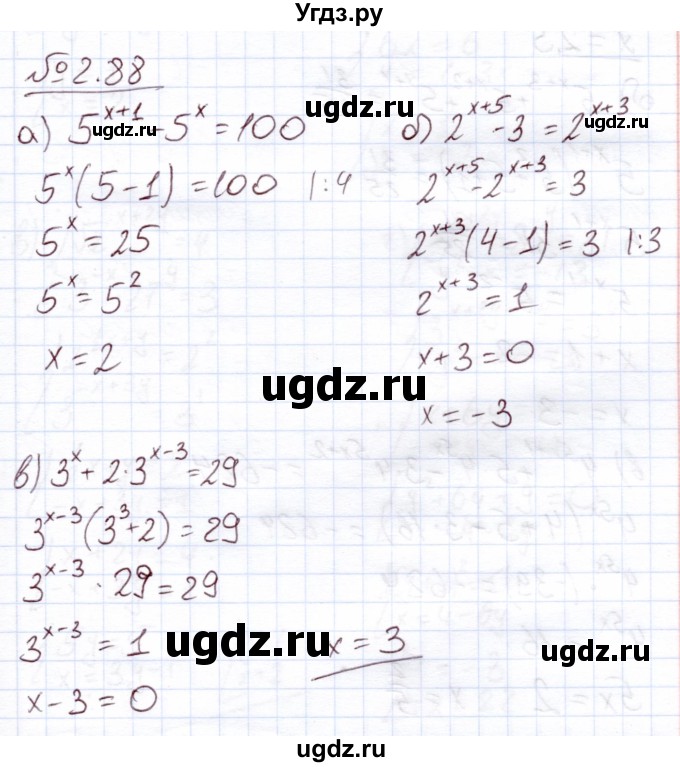 Угдз.ру
№ 2.88
а) 5^(x+1) - 5^x = 100
5^x(5-1) = 100 |:4
5^x = 25
5^x = 5^2
x = 2
б) 2^(x+5) - 3 = 2^(x+3)
2^(x+5) - 2^(x+3) = 3
2^(x+3)(4-1) = 3 |:3
2^(x+3) = 1
x+3 = 0
x = -3
в) 3^x + 2·3^(x-3) = 29
3^(x-3)(3^3+2) = 29
3^(x-3) · 29 = 29
3^(x-3) = 1
x-3 = 0
x = 3
ugdz.ru
ugdz.ru
ugdz.ru
ugdz.ru
ugdz.ru
ugdz.ru
ugdz.ru
ugdz.ru